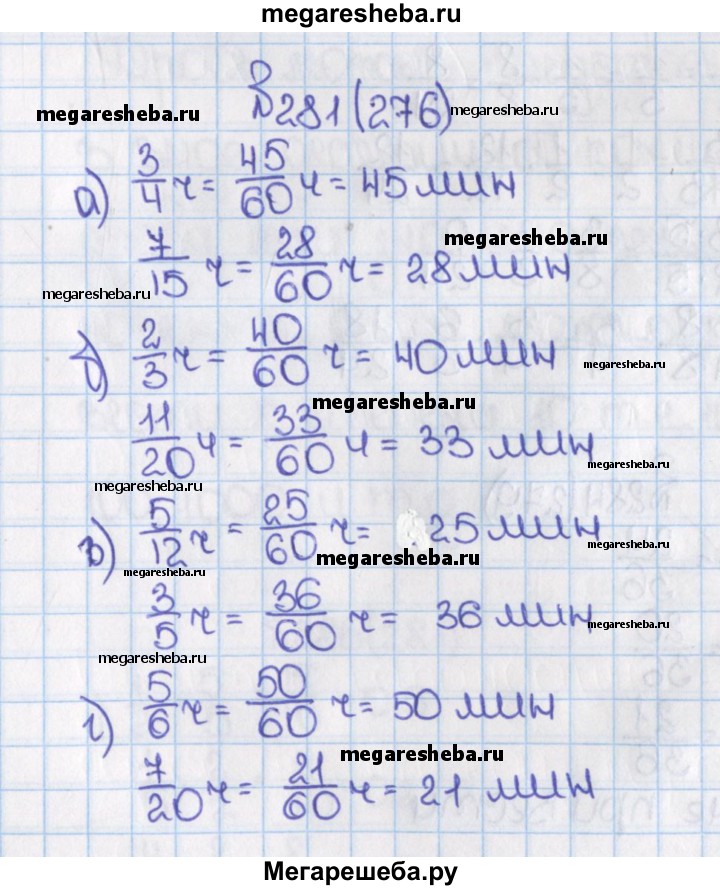 megaresheba.ru
№281(276)
megaresheba.ru
megaresheba.ru
а) 3/4 ч = 45/60 ч = 45 мин
megaresheba.ru
7/15 ч = 28/60 ч = 28 мин
megaresheba.ru
б) 2/3 ч = 40/60 ч = 40 мин
megaresheba.ru
megaresheba.ru
11/20 ч = 33/60 ч = 33 мин
megaresheba.ru
megaresheba.ru
в) 5/12 ч = 25/60 ч = 25 мин
megaresheba.ru
megaresheba.ru
megaresheba.ru
3/5 ч = 36/60 ч = 36 мин
megaresheba.ru
megaresheba.ru
г) 5/6 ч = 50/60 ч = 50 мин
megaresheba.ru
7/20 ч = 21/60 ч = 21 мин
megaresheba.ru
megaresheba.ru
Мегарешеба.ру